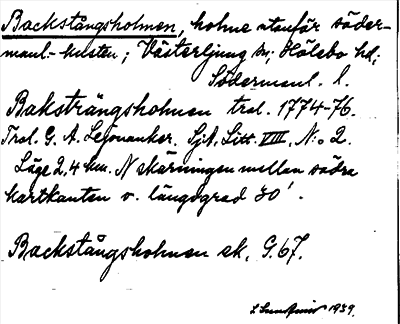 Backstångsholmen, holme utanför söder-
manl.-kusten; Västerljung sn; Hölebo hd;
Södermanl. l.
Baksträngsholmen trol. 1774-76.
Trol. G. A. Lejonanker. Sjk. Litt. VIII. N:o 2.
Läge 2,4 km. N skärningen mellan södra
kartkanten o. längdgrad 30'.
Backstångsholmen ek. G.67.
1939.